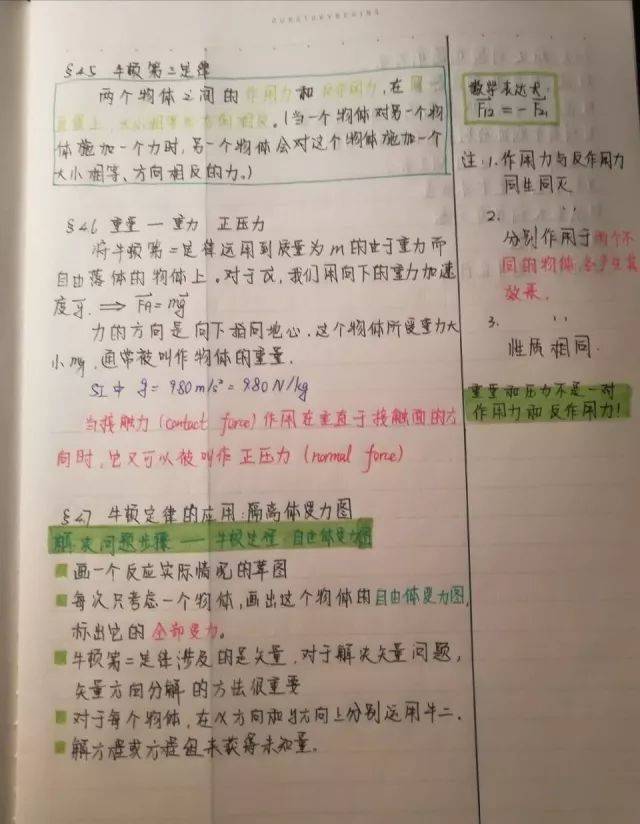 §4.5 牛顿第三定律
两个物体之间的作用力和反作用力,在同一
直线上,大小相等方向相反。(当一个物体对另一个物
体施加一个力时,另一个物体会对这个物体施加一个
大小相等、方向相反的力。)
§4.6 重量 — 重力 正压力
将牛顿第二定律运用到质量为m的由于重力而
自由落体的物体上。对于a,我们用向下的重力加速
度g. ⟹ FG = mg
力的方向是向下指向地心.这个物体所受重力大
小mg,通常被叫作物体的重量.
SI中 g = 9.80 m/s² = 9.80 N/kg
当接触力(contact force)作用在垂直于接触面的方
向时,它又可以被叫作正压力(normal force)
§4.7 牛顿定律的应用:隔离体受力图
解决问题步骤 — 牛顿定律,自由体受力图
画一个反应实际情况的草图
每次只考虑一个物体,画出这个物体的自由体受力图,
标出它的全部受力。
牛顿第二定律涉及的是矢量,对于解决矢量问题,
矢量方向分解的方法很重要
对于每个物体,在x方向和y方向上分别运用牛二.
解方程或方程组来获得未知量。
数学表达式:
F12 = -F21
注:1.作用力与反作用力
同生同灭
2. ''
分别作用于两个不
同的物体,各产生其
效果.
3. ''
性质相同.
重量和压力不是一对
作用力和反作用力!